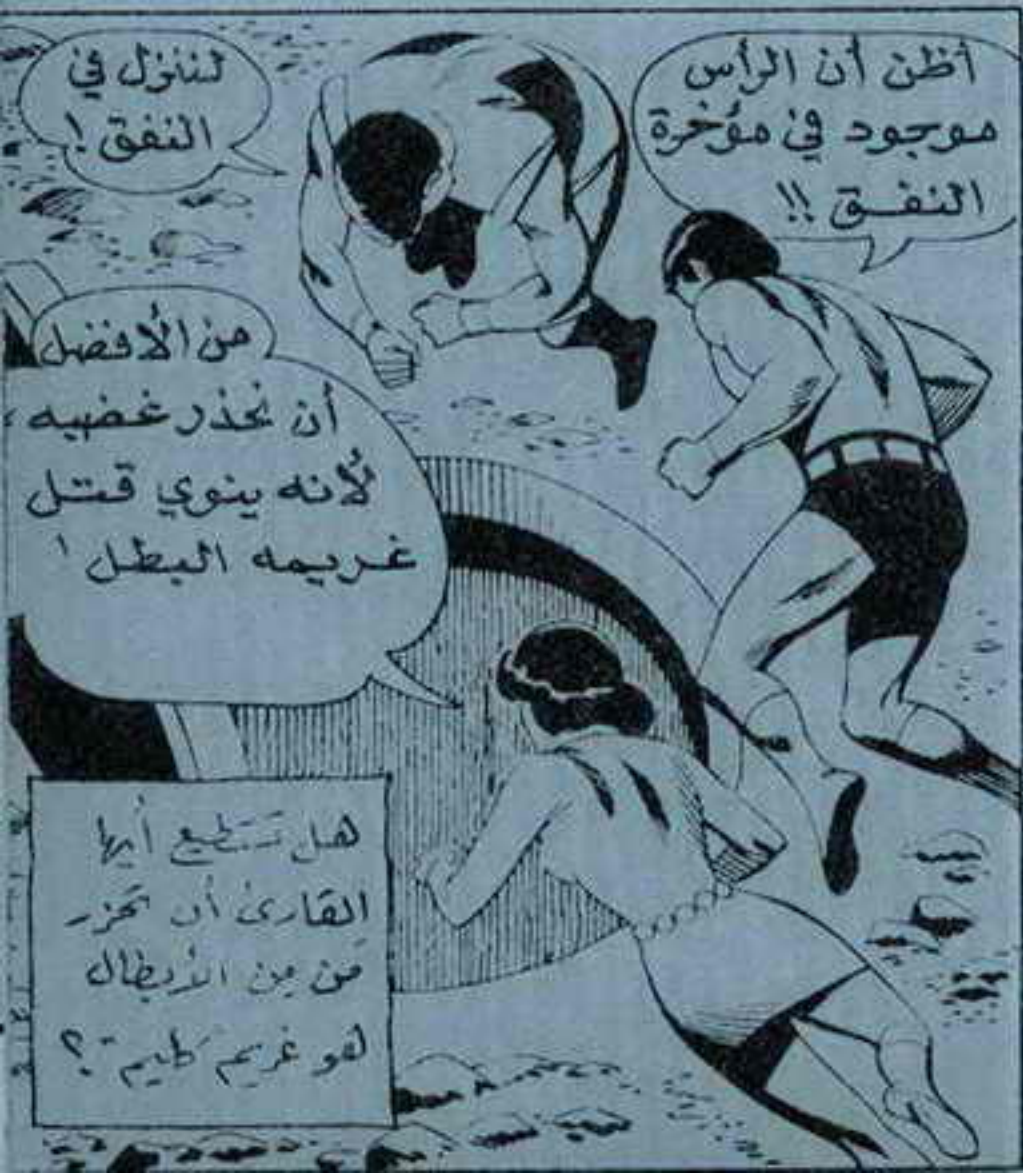 أظن أن الرأس
موجود في مؤخرة
النفـــق !!
لننزل في
النفق !
من الأفضل
أن نحذر غضبه ،
لأنه ينوي قتل
غريمه البطل !
هل تستطيع أيها
القارئ أن تحزر
من من الأبطال
هو غريم كليم ؟